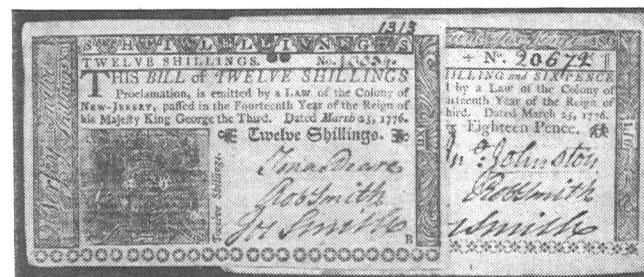 1313
SHILLINGS
TWELVE SHILLINGS. No.
THIS BILL of TWELVE SHILLINGS
Proclamation, is emitted by a LAW of the Colony of
NEW-JERSEY, passed in the Fourteenth Year of the Reign of
his Majesty King George the Third. Dated March 25, 1776.
Twelve Shillings.
Twelve Shillings.
Robt Smith
Jos Smith
B
No. 20672
ILLING and SIXPENCE
by a Law of the Colony of
rteenth Year of the Reign of
hird. Dated March 25, 1776.
Eighteen Pence.
Johnston
Robt Smith
Smith